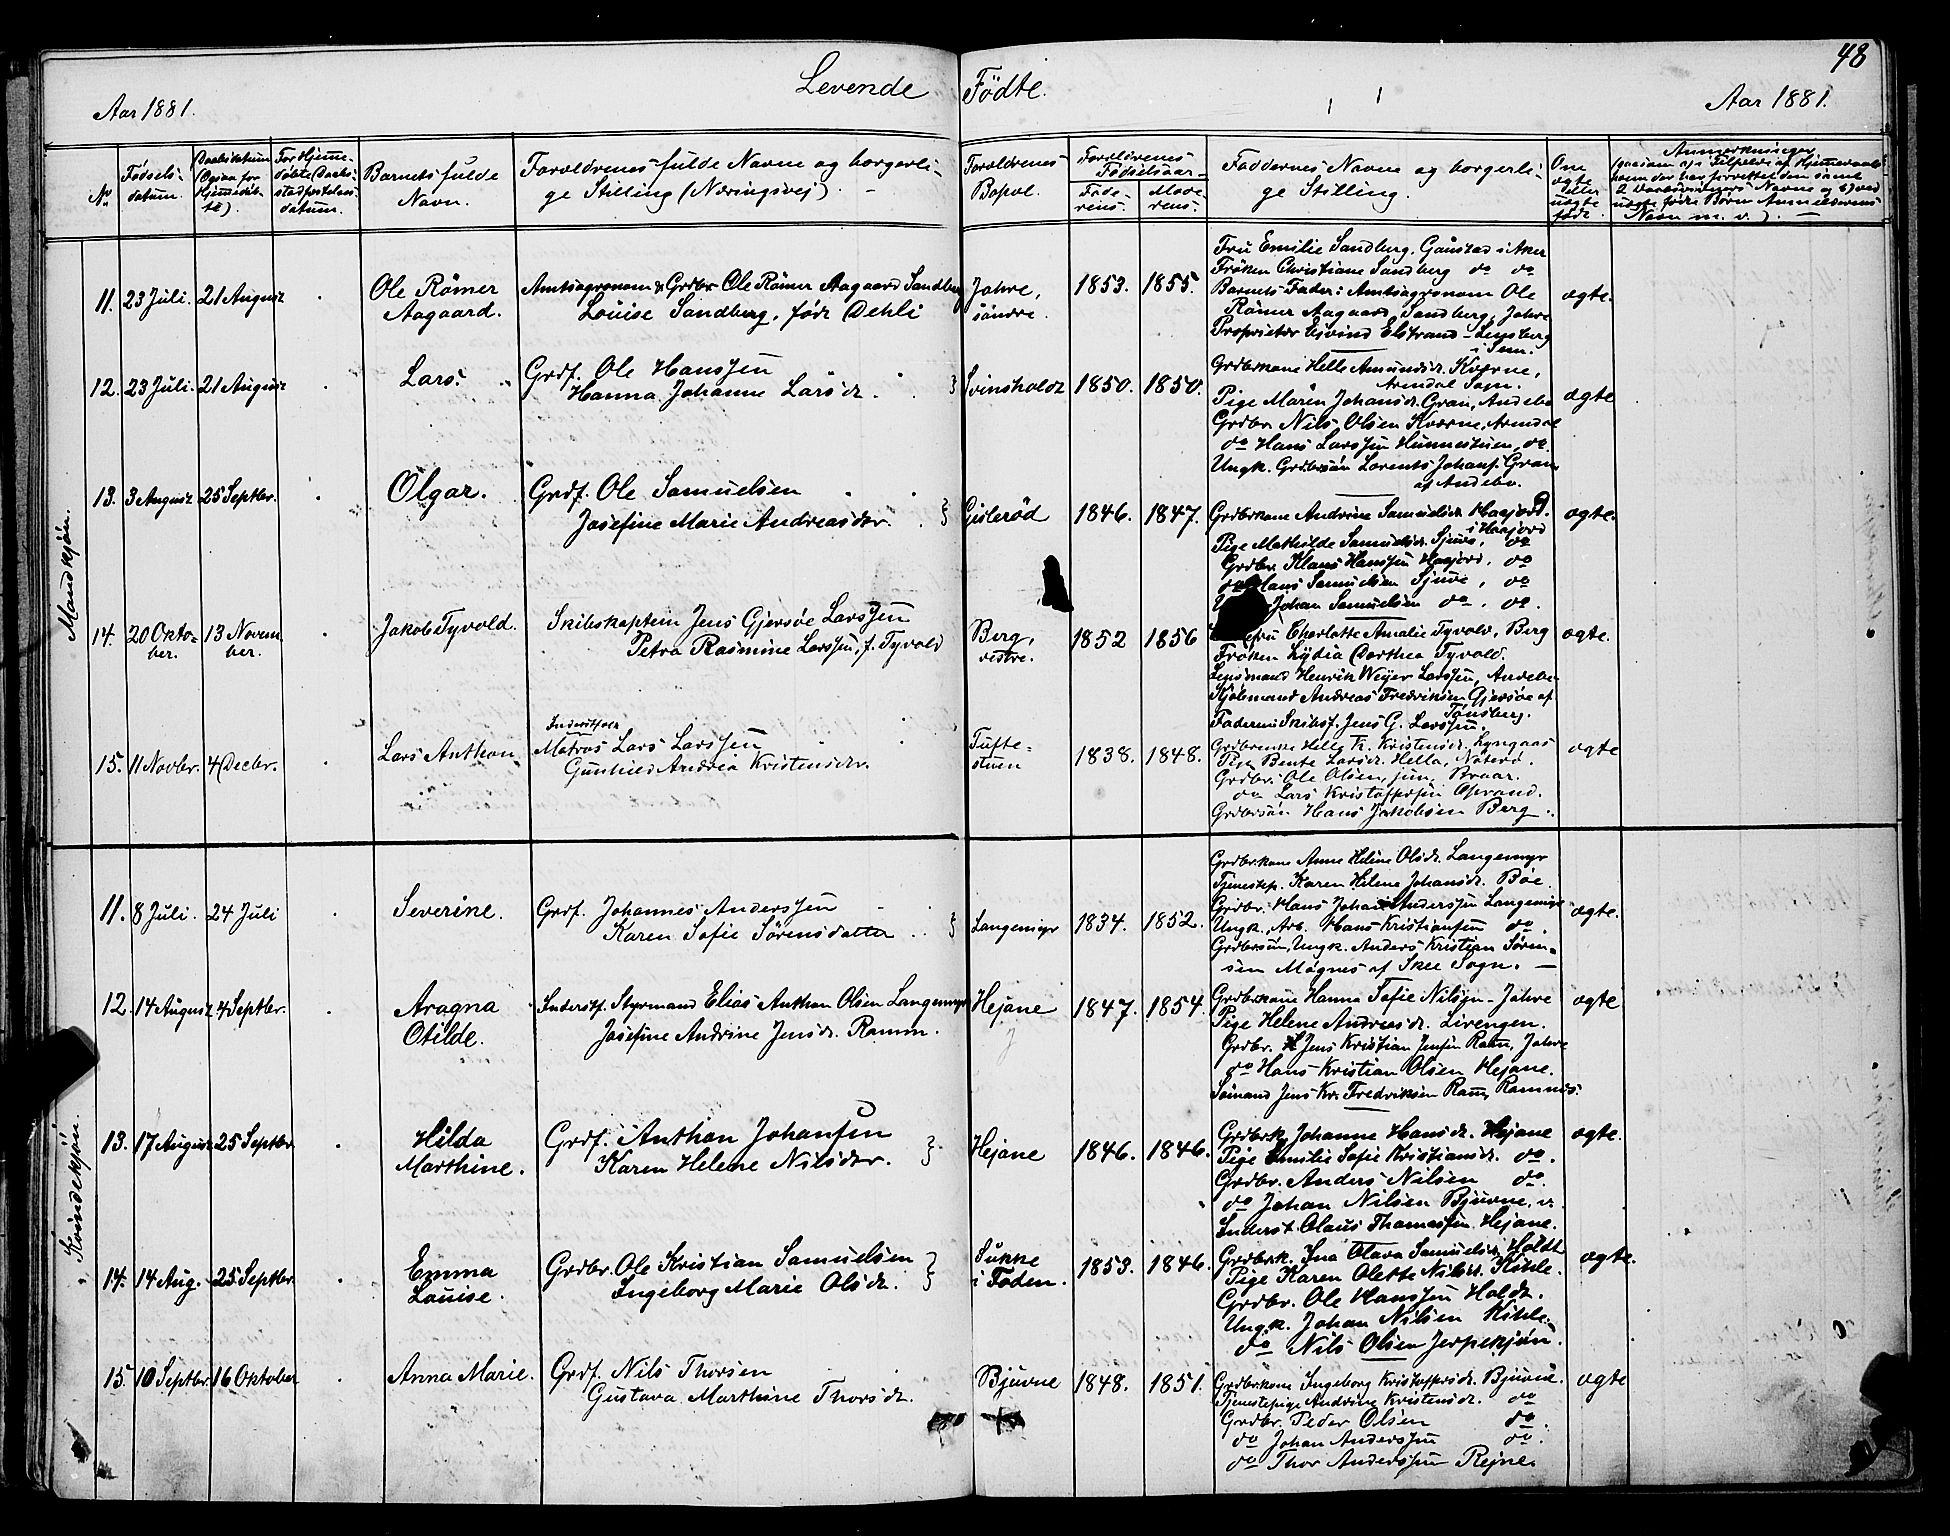 48
Levende Födte.
Aar 1881. Aar 1881.
No
Fødsels-
datum.
Daabsdatum
(Ogsaa for
Hjemmedöb-
te).
For Hjemme-
døbte Daabs-
stadfæstelses-
datum.
Barnets fulde
Navn.
Forældrenes fulde Navne og borgerli-
ge Stilling (Næringsvej).
Forældrenes
Bopæl.
Forældrenes
Födselsaar
Fade-
rens.
Mode-
rens.
Faddernes Navne og borgerli-
ge Stilling.
Om
ægte
eller
uægte
født.
Anmærkninger
Navn m. v.).
Mandkjön.
11. 23 Juli. 21 August
Ole Römer
Aagaard.
Amtsagronom & Grdbr Ole Römer Aagaard Sandberg
Louise Sandberg, født Dehli
Jahre,
söndre.
1853. 1855.
Fru Emilie Sandberg. Gaustad i Aker
Fröken Christiane Sandberg do do
Barnets Fader: Amtsagronom Ole
Römer Aagaard Sandberg, Jahre
Proprietær Eivind Elstrand - Lensberg
i Sem.
ægte.
12. 23 Juli. 21 August
Lars.
Grdf. Ole Hanssen
Hanna Johanne Larsdr.
Svinsholdt
1850. 1850.
Grdbrkone Helle Amundsdr. Kværne,
Arendal Sogn.
Pige Maren Johansdr. Gran, Andebu
Grdbr. Nils Olsen Kværne, Arendal
do Hans Larssen Hunnestuen, do
Ungk. Grdbrsön Lorents Johans. Gran
af Andebu.
ægte
13. 3 August 25 Septbr.
Olgar.
Grdf. Ole Samuelsen
Josefine Marie Andreasdtr.
Gislerød
1846. 1847.
Grdbrkone Andrine Samuelsdr. Haasjord.
Pige Mathilde Samuelsdr. Sjuve, do
Grdbr. Klaus Hanssen Haasjord, do
do Hans Samuelsen Sjuve, do
Johan Samuelsen do, do.
ægte.
14. 20 Okto-
ber.
13 Novem
ber.
Jakob Tyvold.
Skibskaptein Jens Gjersøe Larssen
Petra Rasmine Larssen, f. Tyvold
Berg,
vestre.
1852 1856
Charlotte Amalie Tyvold, Berg
Fröken Lydia Dorthea Tyvold.
Lensmand Henrik Weyer Larssen, Andebu
Kjöbmand Andreas Fredriksen Gjersøe af
Tönsberg.
Faderen: Skibsf. Jens G. Larssen.
ægte.
15. 11 Novbr. 4 Decbr.
Lars Anthon
Inderst &
Matros Lars Larssen
Gunhild Andrea Kristensdtr.
Tufte-
stuen
1838. 1848.
Grdbrenke Helle K. Kristensdr. Lyngaas
Pige Bente Larsdr. Hella, Nøterø.
Grdbr. Ole Olsen, jun, Braar.
do Lars Kristoffersen Oprand.
Grdbrsön Hans Jakobsen Berg.
ægte
Kvindekjön.
11. 8 Juli. 24 Juli
Severine.
Grdf. Johannes Anderssen
Karen Sofie Sörensdatter
Langemyr
1834. 1852.
Grdbrkone Anne Helene Olsdr. Langemyr
Tjenestep. Karen Helene Johansdr. Böe.
Grdbr. Hans Johan Anderssen Langemyr
Ungk. Arb. Hans Kristiansen do.
Grdbrsön, Ungk. Anders Kristian Sören-
sen Mögnes af Skee Sogn.
ægte.
12. 14 August 4 Septbr.
Aragna
Otilde.
Inderst. Styrmand Elias Anthon Olsen Langemyr
Josefine Andrine Jensdr. Ramm.
Hejane
1847. 1854.
Grdbrkone Hanna Sofie Nilssen - Jahre
Pige Helene Andreasdr. Lirengen.
Grdbr. Jens Kristian Jensen Ram, Jahre
do Hans Kristian Olsen Hejane.
Sömand Jens Kr. Fredriksen Ram, Ramnæs.
ægte
13. 17 August 25 Septbr
Hilda
Marthine.
Grdf. Anthon Johansen
Karen Helene Nilsdtr.
Hejane
1846. 1846.
Grdbrk. Johanne Hansdr. Hejane
Pige Emilie Sofie Kristiansdr. do.
Grdbr. Anders Nilsen do.
do Johan Nilsen Bjuvne, v.
Inderst Olaus Thomassen, Hejane.
ægte.
14. 14 Aug. 25 Septbr.
Emma
Louise.
Grdbr. Ole Kristian Samuelsen
Ingeborg Marie Olsdr.
Sukke
i Foden.
1853. 1846.
Grdbrk. Ina Olava Samuelsdr. Holdt
Pige Karen Olette Nilsdr. Kihle.
Grdbr. Ole Hanssen Holdt.
Ungk. Johan Nilsen Kihle.
do Nils Olsen Jerpekjön.
ægte.
15. 10 Septbr. 16 Oktober
Anna Marie.
Grdf. Nils Thorsen
Gustava Marthine Thorsdr.
Bjuvne
1848. 1851.
Grdbrkone Ingeborg Kristoffersdr. Bjuvne.
Tjenestepige Andrine Kristensdr. do
Grdbr. Peder Olsen do.
do Johan Anderssen do.
do Thor Anderssen Rejne.
ægte